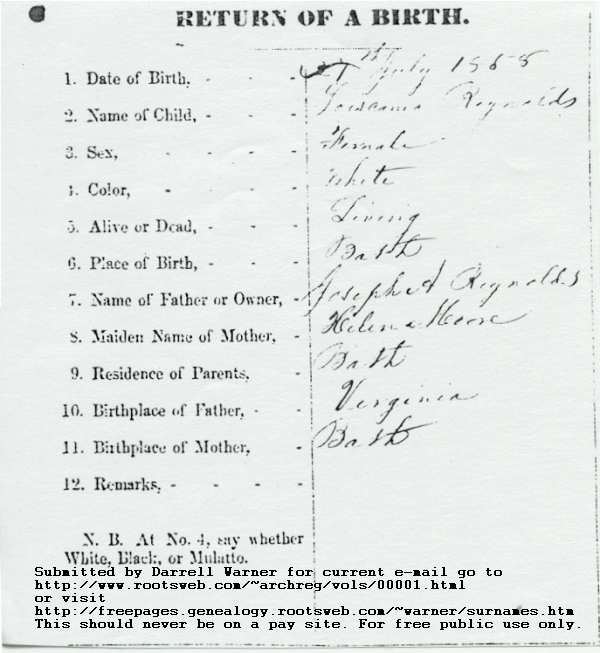 RETURN OF A BIRTH.
1. Date of Birth, - - - July
2. Name of Child, - - - Reynolds
3. Sex, - - - - Female
4. Color, - - - - White
5. Alive or Dead, - - - Living
6. Place of Birth, - - - Bath
7. Name of Father or Owner, - Joseph A Reynolds
8. Maiden Name of Mother, - Helena Moore
9. Residence of Parents, - Bath
10. Birthplace of Father, - - Virginia
11. Birthplace of Mother, - Bath
12. Remarks, - - - -
N. B. At No. 4, say whether
White, Black, or Mulatto.
Submitted by Darrell Warner for current e-mail go to
http://www.rootsweb.com/~archreg/vols/00001.html
or visit
http://freepages.genealogy.rootsweb.com/~warner/surnames.htm
This should never be on a pay site. For free public use only.